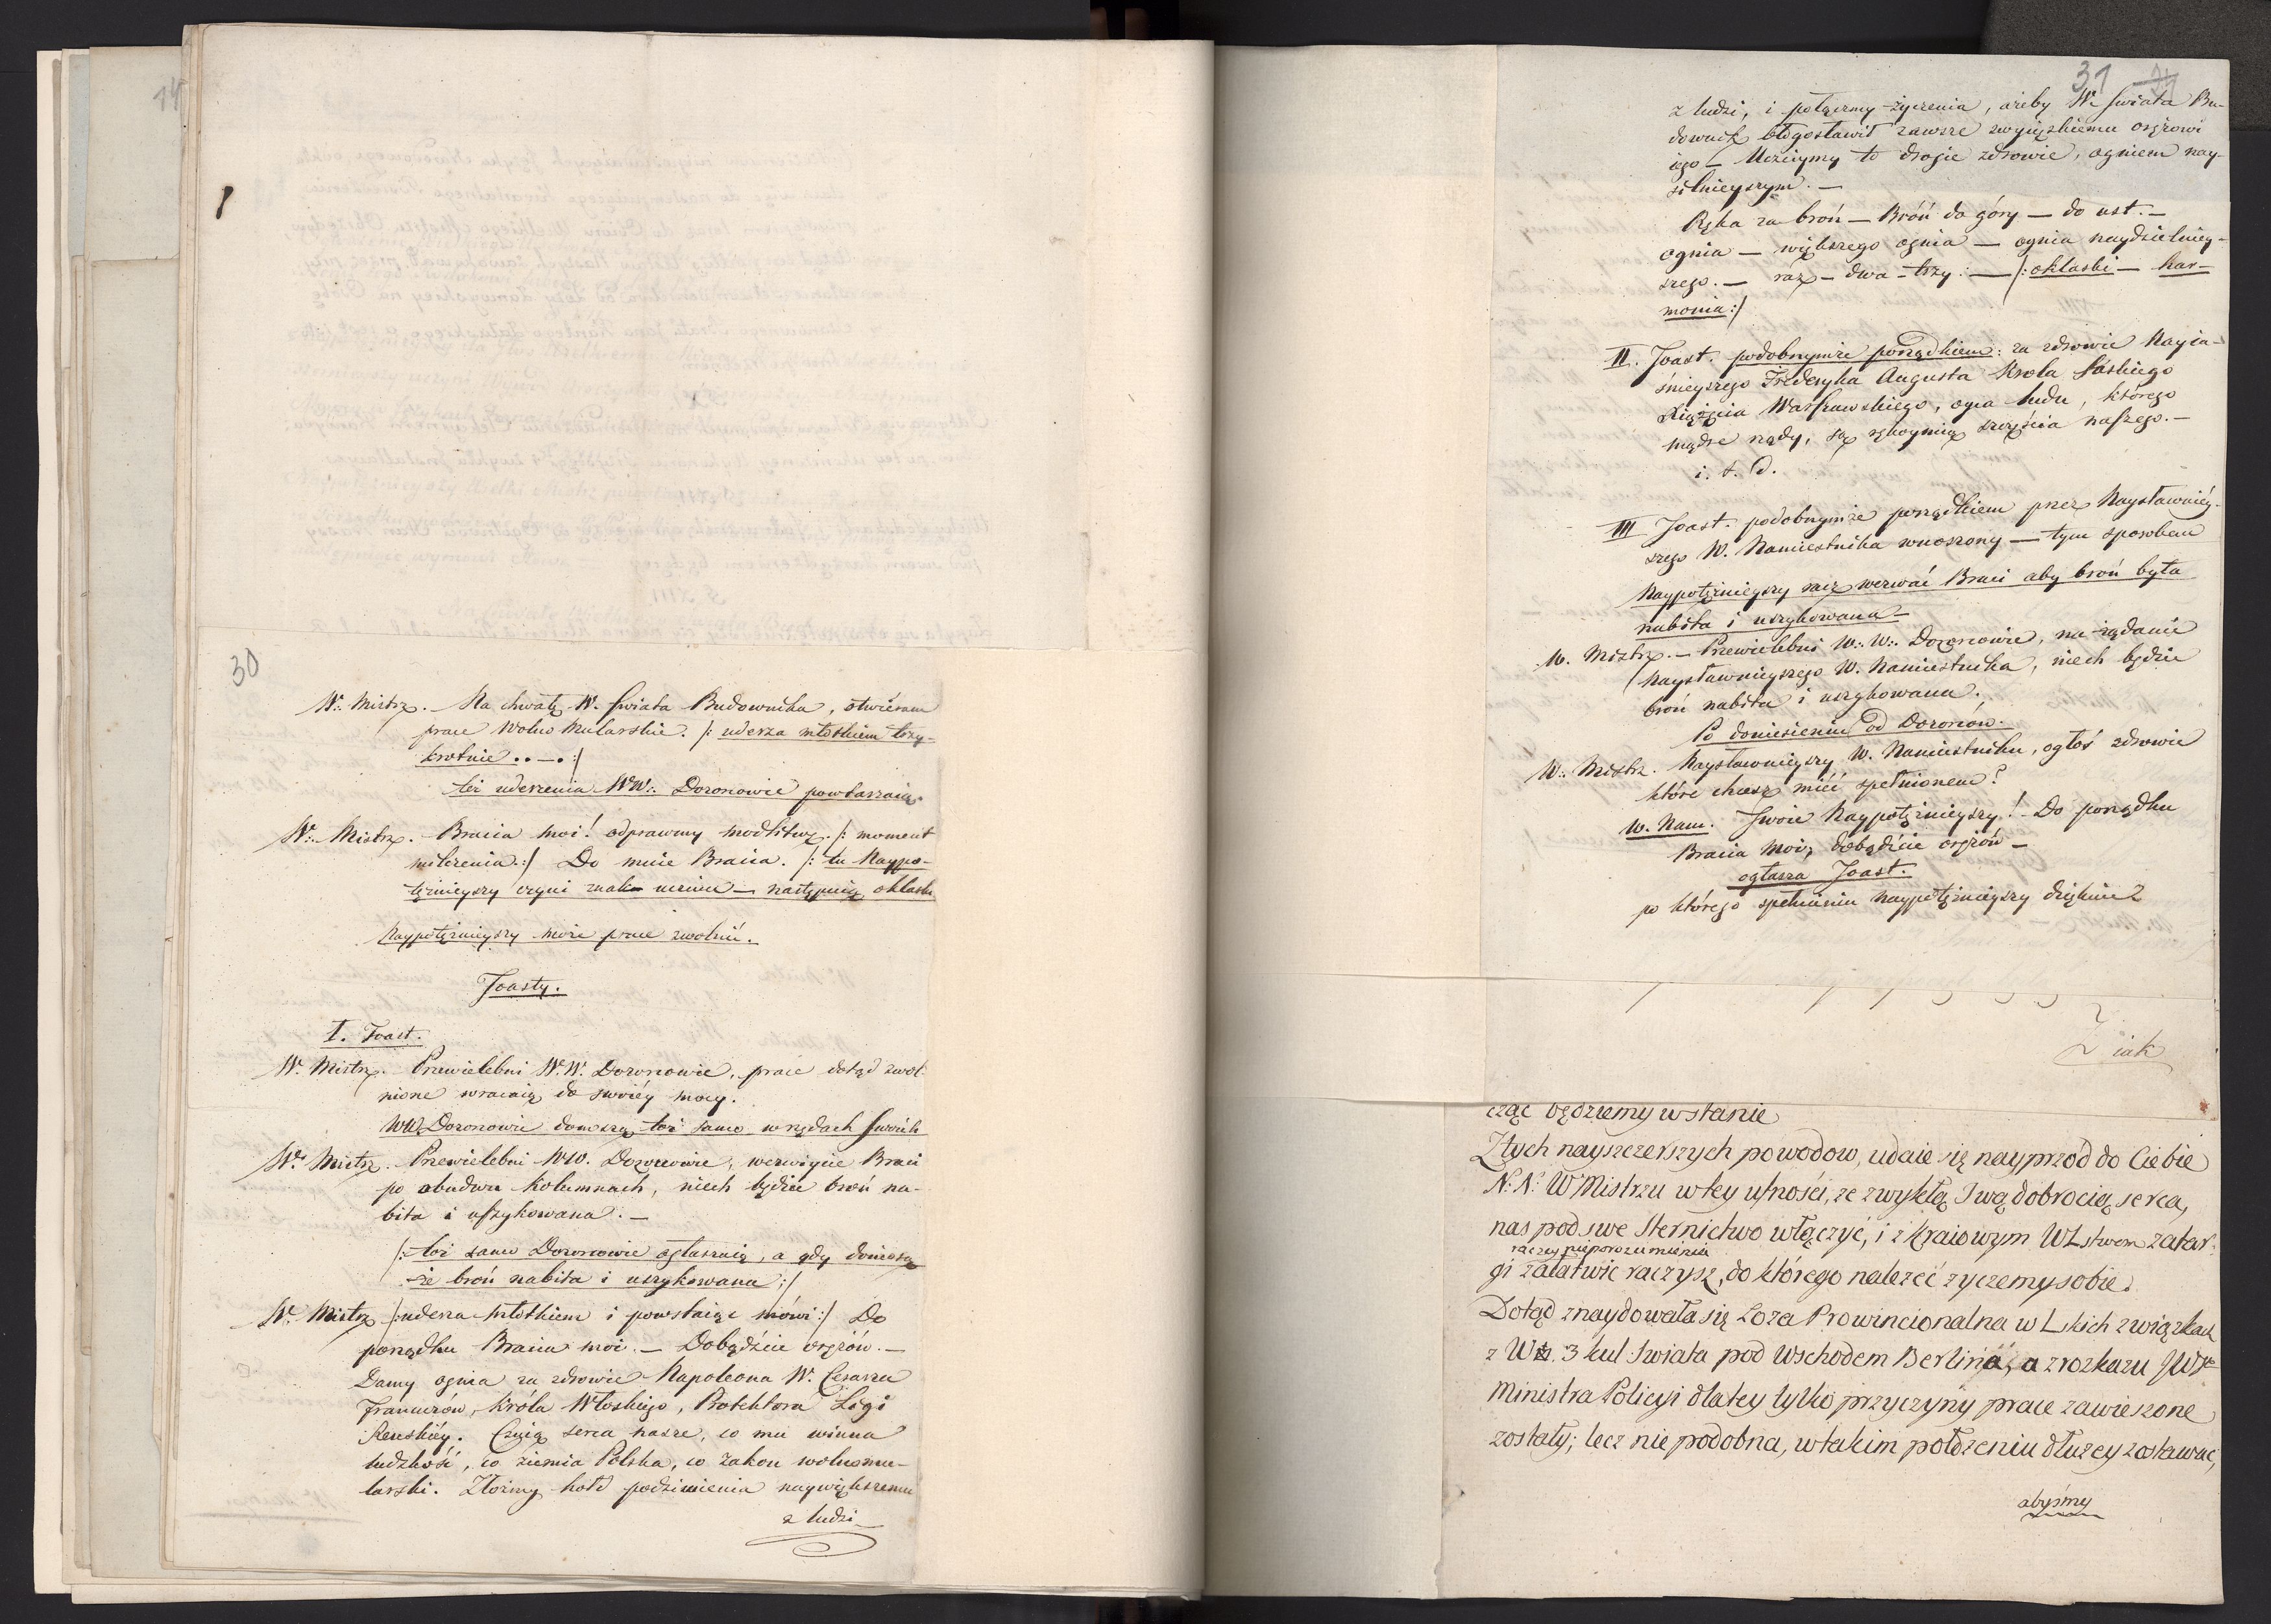 14
30
W. Mistrz. Na chwałę W. Świata Budownika, otwieram
prace Wolno Mularskie. /: uderza młotkiem trzy-
krotnie ..—. :/
też uderzenia WW. Dozorcowie powtarzaią.
W. Mistrz. Bracia moi! odprawmy modlitwę. /: moment
milczenia. :/ Do mnie Bracia. /: tu Naypo-
tężnieyszy czyni znak ucznia — następuią oklaski
Naypotężnieyszy może prace zwolnić.
Toasty.
I. Toast.
W. Mistrz. Przewielebni W. W. Dozorcowie, prace dotąd zwol-
nione wracaią do swoiéy mocy.
WW. Dozorcowie donoszą toż samo w rzędach swoich
W. Mistrz. Przewielebni WW. Dozorcowie, wezwiycie Braci
po obudwu kolumnach, niech będzie broń na-
bita i uszykowana. —
/: toż samo Dozorcowie ogłaszaią, a gdy doniosą
że broń nabita i uszykowana :/
W. Mistrz /: uderza młotkiem i powstaiąc mówi :/ Do
porządku Bracia moi. — Dobądźcie orężów. —
Damy ognia za zdrowie Napoleona W. Cesarza
Francuzów, Króla Włoskiego, Protektora Ligi
Renskiéy. Czuią serca nasze, co mu winna
ludzkość, co ziemia Polska, co Zakon wolnomu-
larski. Złożmy hołd podziwienia naywiększemu
z ludzi
31
z ludzi, i połączmy życzenia, ażeby W. Świata Bu-
downik błogosławił zawsze zwycięzkiemu orężowi
iego — Uczciymy to drogie zdrowie, ogniem nay-
silnieyszym. —
Ręka za broń — Broń do góry — do ust. —
ognia — większego ognia — ognia naydzielniey-
szego. — raz — dwa — trzy : — /: oklaski — har-
monia :/
II. Toast. podobnymże porządkiem: za zdrowie Nayia-
śnieyszego Fryderyka Augusta Krola Saskiego
Xiążęcia Warszawskiego, oyca ludu, którego
mądre rządy, są rękoymią szczęścia naszego. —
i. t. d.
III Toast. podobnymże porządkiem przez Naysławniéy-
szego W. Namiestnika wnoszony — tym sposobem
Naypotężnieyszy racz wezwać Braci aby broń była
nabita i uszykowana —
W. Mistrz. — Przewielebni W. W. Dozorcowie, na żądanie
Naysławnieyszego W. Namiestnika, niech będzie
broń nabita i uszykowana.
Po doniesieniu od Dozorców.
W. Mistrz. Naysławnieyszy W. Namiestniku, ogłoś zdrowie
które chcesz mieć spełnionem?
W. Nam. Twoie Naypotężnieyszy! Do porządku
Bracia moi, dobądźcie orężów —
ogłasza Toast.
po którego spełnieniu naypotężnieyszy dziękuie
iak
cząc będziemy w stanie
Z tych nayszczerszych powodow, udaie się nayprzod do Ciebie
N. N. W Mistrzu w tey ufności, ze zwykłą Twą dobrocią serca,
nas pod swe Sternictwo włączyć, i z Kraiowym WLstwem zatar-
raczey nieporozumienia
gi załatwić raczysz, do którego nalezeć zyczemy sobie.
Dotąd znaydowała się Loza Prowincionalna w Lskich związkach
z W. 3 kul Swiata pod Wschodem Berlina, a z rozkazu JW
Ministra Policyi dla tey tylko przyczyny prace zawieszone
zostały; lecz nie podobna, w takim połozeniu dłuzey zostawać,
abyśmy